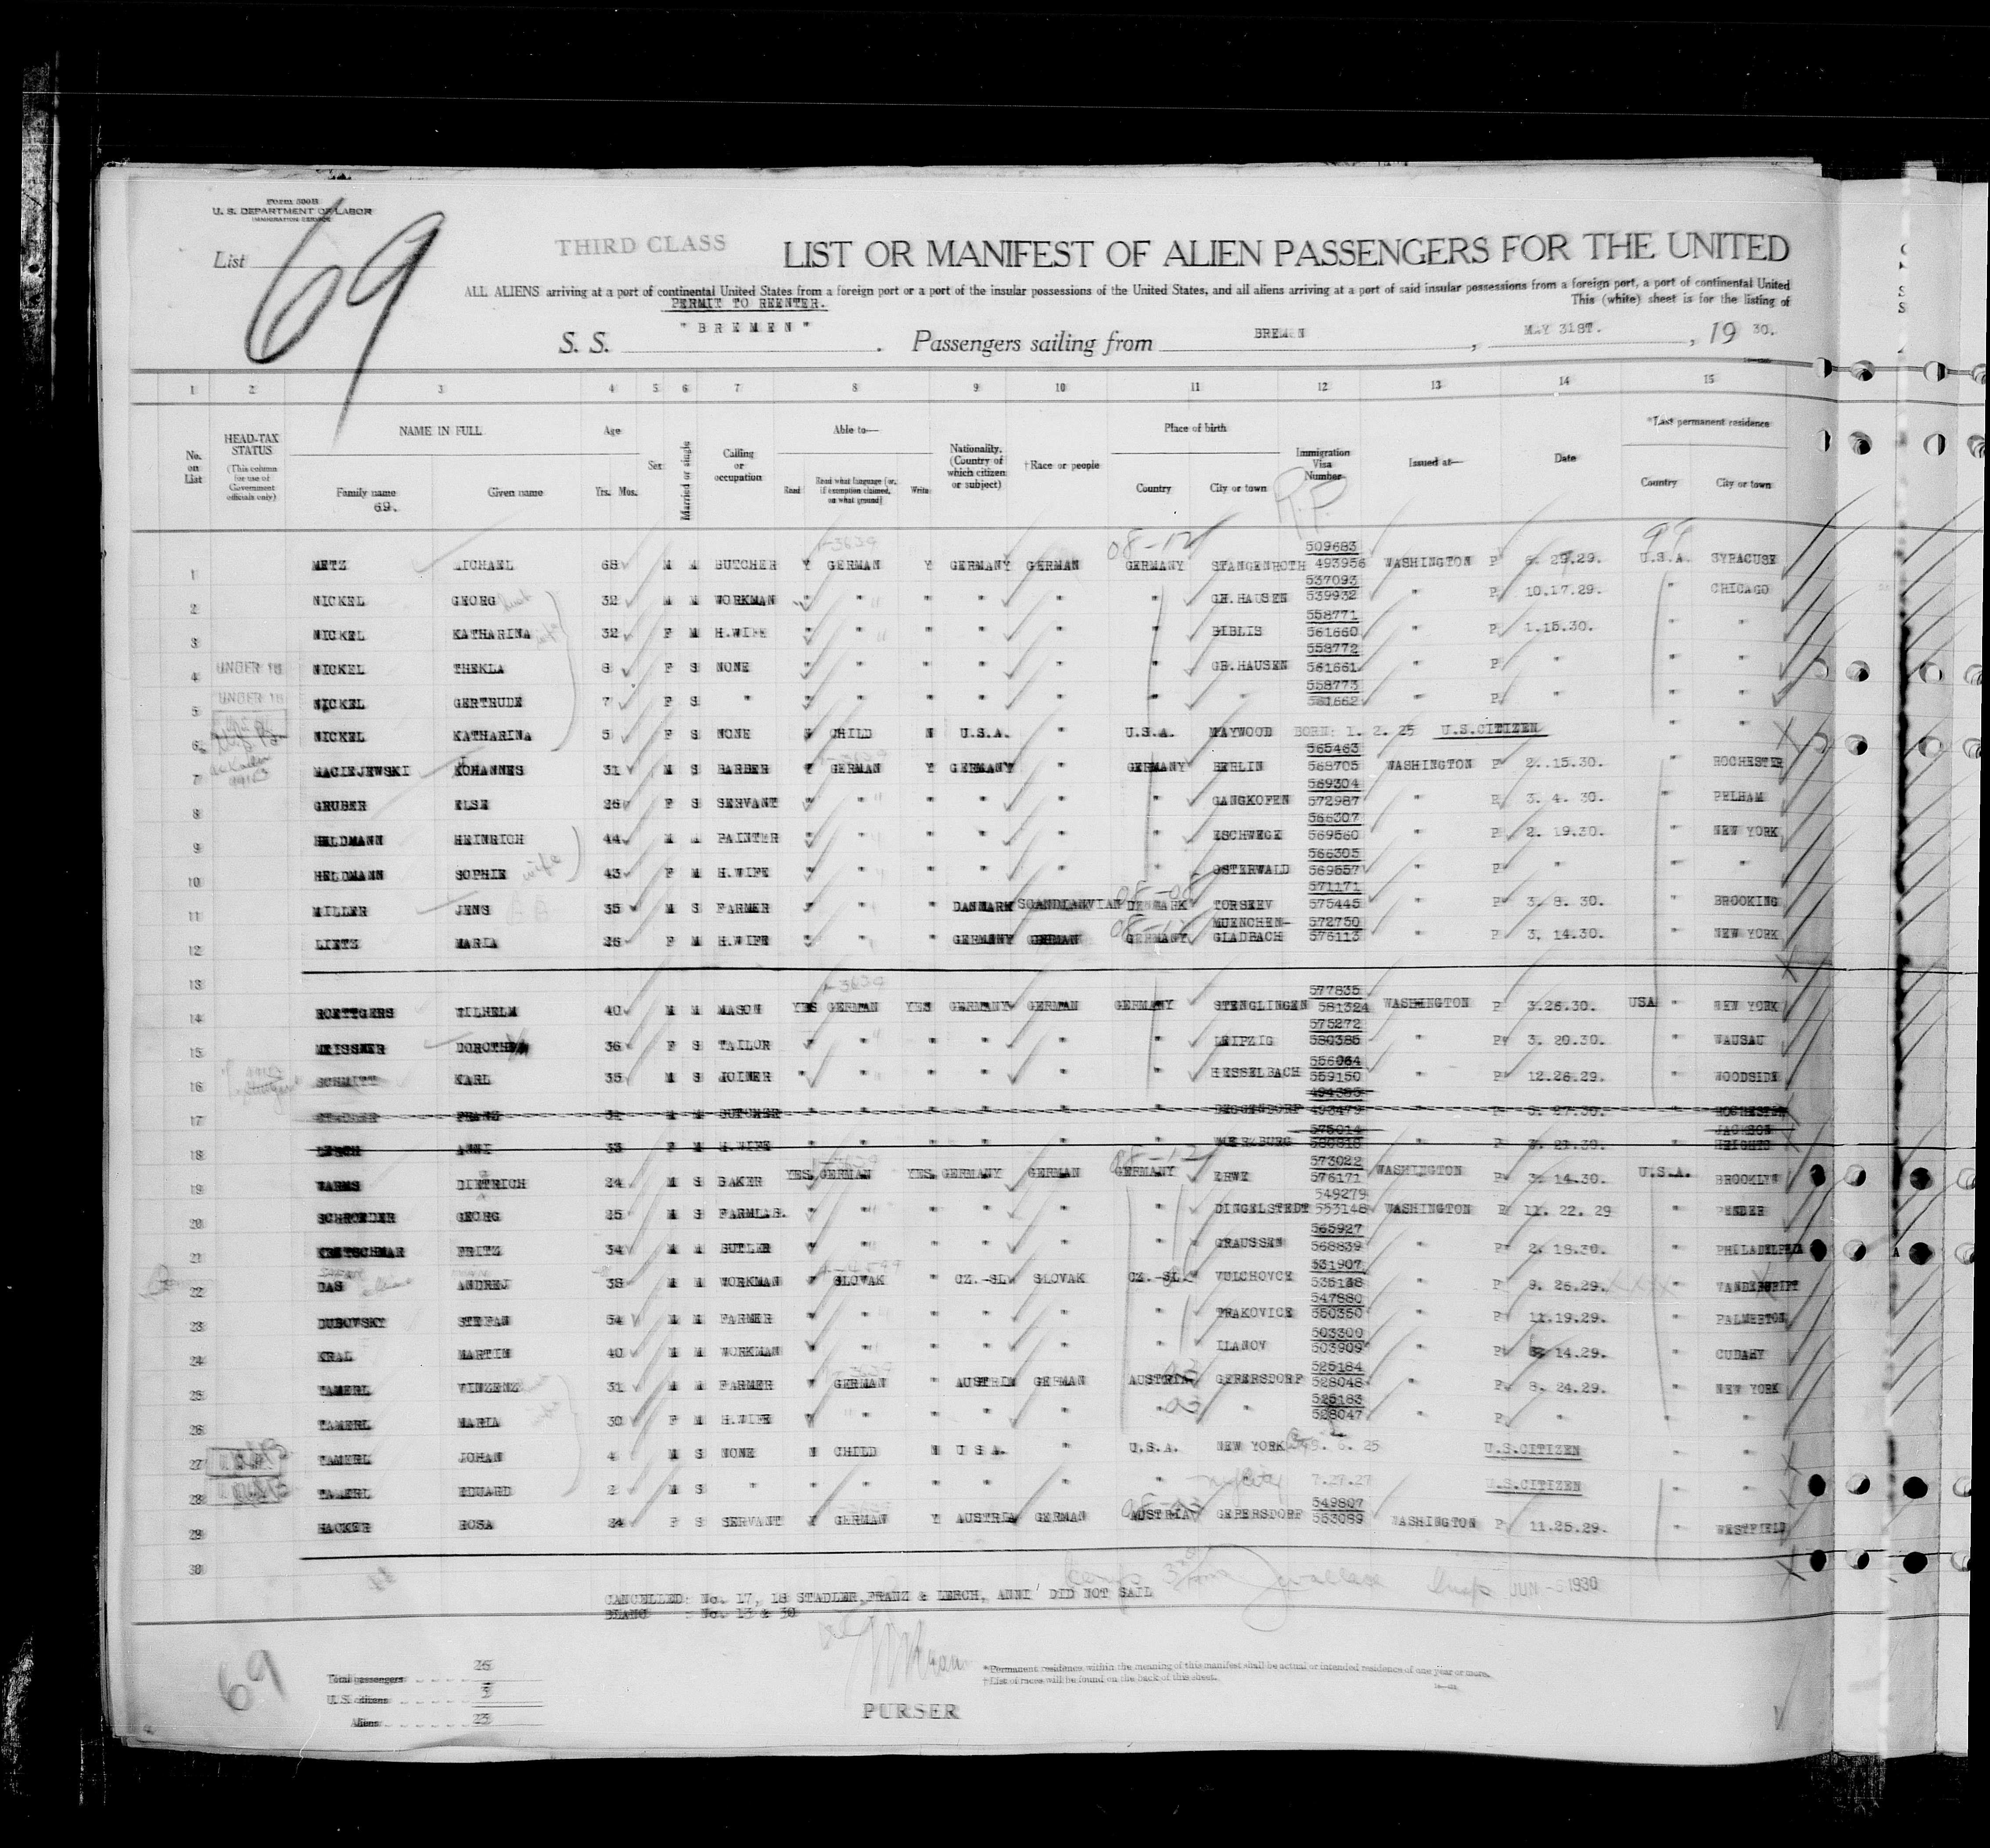 Form 500B
U. S. DEPARTMENT OF LABOR
IMMIGRATION SERVICE
List 69
THIRD CLASS
LIST OR MANIFEST OF ALIEN PASSENGERS FOR THE UNITED
ALL ALIENS arriving at a port of continental United States from a foreign port or a port of the insular possessions of the United States, and all aliens arriving at a port of said insular possessions from a foreign port, a port of continental United
PERMIT TO REENTER.
This (white) sheet is for the listing of
S. S. "BREMEN" . Passengers sailing from BREMEN , MAY 31ST. , 19 30.
1 2 3 4 5 6 7 8 9 10 11 12 13 14 15
No. on List
HEAD-TAX STATUS
(This column for use of Government officials only)
NAME IN FULL
Family name
69.
Given name
Age
Yrs. Mos.
Sex
Married or single
Calling or occupation
Able to—
Read
Read what language (or, if exemption claimed, on what ground)
Write
Nationality. (Country of which citizen or subject)
†Race or people
Place of birth
Country
City or town
Immigration Visa Number
R.P.
Issued at—
Date
*Last permanent residence
Country
City or town
1 METZ MICHAEL 68 M M BUTCHER Y GERMAN Y GERMANY GERMAN GERMANY STANGENROTH 509683 493956 WASHINGTON P 29.29. U.S.A. SYRACUSE
2 NICKEL GEORG 32 M M WORKMAN " " " " " " GR.HAUSEN 537093 539932 " P 10.17.29. " CHICAGO
3 NICKEL KATHARINA wife 32 F M H.WIFE " " " " " " BIBLIS 558771 561660 " P 1.15.30. " "
4 UNDER 16 NICKEL THEKLA 8 F S NONE " " " " " " GR.HAUSEN 558772 561661 " P " " "
5 UNDER 16 NICKEL GERTRUDE 7 F S " " " " " " " " 558773 561662 " P " " "
6 NICKEL KATHARINA 5 F S NONE N CHILD N U.S.A. " U.S.A. MAYWOOD BORN: 1. 2. 25 U.S.CITIZEN " "
7 MACIEJEWSKI JOHANNES 31 M S BARBER Y GERMAN Y GERMANY " GERMANY BERLIN 565463 568705 WASHINGTON P 2.15.30. ROCHESTER
8 GRUBER ELSE 26 F S SERVANT " " " " " " GANGKOFEN 569304 572987 " P 3. 4. 30. " PELHAM
9 HELDMANN HEINRICH 44 M M PAINTER " " " " " " ESCHWEGE 566307 569560 " P 2. 19.30. " NEW YORK
10 HELDMANN SOPHIE wife 43 F M H.WIFE " " " " " " OSTERWALD 566305 569557 " P " " "
11 MILLER JENS 35 M S FARMER " " " DANMARK SCANDIANVIAN DENMARK TORSEEV 571171 575445 " P 3. 8. 30. " BROOKING
12 LIETZ MARIA 26 F M H.WIFE " " " GERMANY GERMAN GERMANY MUENCHEN-GLADBACH 572750 575113 " P 3. 14.30. " NEW YORK
13
14 ROETTGERS WILHELM 40 M M MASON YES GERMAN YES GERMANY GERMAN GERMANY STENGLINGEN 577835 581324 WASHINGTON P 3.26.30. USA " NEW YORK
15 MEISSNER 36 F S TAILOR " " " " " " LEIPZIG 575272 580385 " P 3. 20.30. " WAUSAU
16 SCHMITT KARL 35 M S JOINER " " " " " " HESSELBACH 556064 559150 " P 12.26.29. " WOODSIDE
17 STADLER FRANZ 31 M M BUTCHER " " " " " " DEGGENDORF 493479 " P 27.30. " ROCHESTER
18 LERCH ANNI 33 F M H.WIFE " " " " " " WUERZBURG 575014 " P 3. 21.30. " JACKSON HEIGHTS
19 WARMS DIETRICH 24 M S BAKER YES GERMAN YES GERMANY GERMAN GERMANY ERWE 573022 576171 WASHINGTON P 3. 14.30. U.S.A. BROOKLYN
20 SCHROEDER GEORG 25 M S FARMLAB. " " " " " " DINGELSTEDT 549279 553148 WASHINGTON P 11. 22. 29 " PENDER
21 KRETSCHMAR FRITZ 34 M M BUTLER " " " " " " GRAUSSEN 565927 568839 " P 2. 18.30. " PHILADELPHIA
22 DAS ANDREJ 38 M M WORKMAN " SLOVAK " CZ.-SL. SLOVAK CZ.-SL. VULCHOVCE 531907 535138 " P 9. 26.29. " VANDERGRIFT
23 DUBOVSKY STEFAN 54 M M FARMER " " " " " " TRAKOVICE 547880 550350 " P 11.19.29. " PALMERTON
24 KRAL MARTIN 40 M M WORKMAN " " " " " " ILANOV 503300 503909 " P 14.29. " CUDAHY
25 TAMERL VINZENZ 31 M M FARMER " GERMAN " AUSTRIA GERMAN AUSTRIA GERERSDORF 525184 528048 " P 8. 24.29. " NEW YORK
26 TAMERL MARIA wife 30 F M H.WIFE " " " " " " " 525183 528047 P " " "
27 TAMERL JOHAN 4 M S NONE N CHILD N U S A. " U.S.A. NEW YORK 9. 6. 25 U.S.CITIZEN " "
28 TAMERL EDUARD 2 M S " " " " " " " 7.27.27 U.S.CITIZEN " "
29 HACKER ROSA 24 F S SERVANT Y GERMAN Y AUSTRIA GERMAN AUSTRIA GERERSDORF 549807 553089 WASHINGTON P 11.25.29. " WESTFIELD
30
JUN -5 1930
CANCELLED: No. 17, 18 STADLER,FRANZ & LERCH, ANNI DID NOT SAIL
BLANC : No. 13 & 30
69
Total passengers 26
U. S. citizens 3
Aliens 23
PURSER
*Permanent residence within the meaning of this manifest shall be actual or intended residence of one year or more.
†List of races will be found on the back of this sheet.